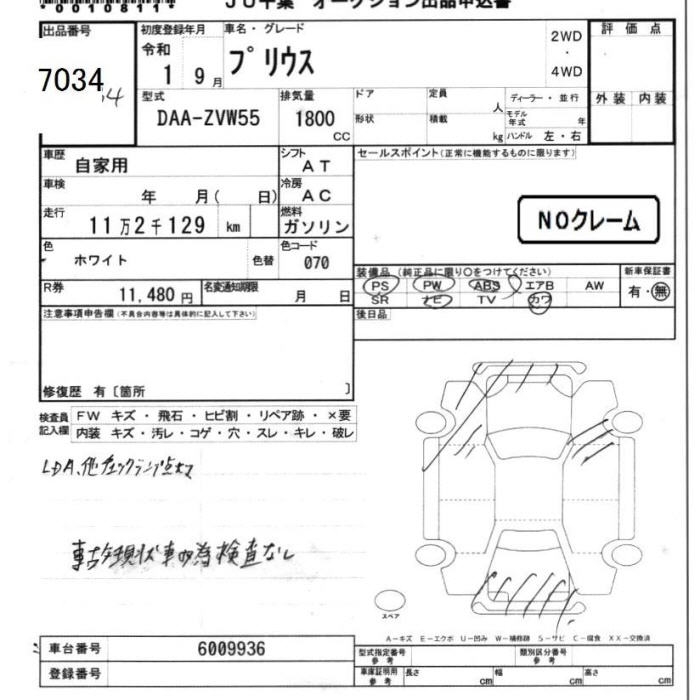 00108111
JU千葉 オークション出品申込書
出品番号 初度登録年月 車名・グレード 2WD・4WD 評価点
7034 令和 1 9月 プリウス
外装 内装
型式 排気量 ドア 定員 人 ディーラー・並行
DAA-ZVW55 1800 CC 形状 積載 kg モデル年式 年
ハンドル 左・右
車歴 自家用 シフト AT セールスポイント(正常に機能するものに限ります)
車検 年 月( 日) 冷房 AC
走行 11万2千129 km 燃料 ガソリン NOクレーム
色 ホワイト 色替 色コード 070
装備品(純正品に限り○をつけてください) 新車保証書
PS PW ABS エアB AW 有・無
SR ナビ TV カワ
R券 11,480円 名変通知期限 月 日
後日品
注意事項申告欄(不具合内容等は具体的に記入して下さい)
修復歴 有〔箇所 〕
検査員記入欄 FW キズ・飛石・ヒビ割・リペア跡・×要
内装 キズ・汚レ・コゲ・穴・スレ・キレ・破レ
LDA、他チェックランプ点灯
事故現状車の為検査なし
スペア
A-キズ E-エクボ U-凹み W-補修跡 S-サビ C-腐食 XX-交換済
車台番号 6009936 型式指定番号 参考 類別区分番号 参考
登録番号 車庫証明用 参考 長さ cm 幅 cm 高さ cm